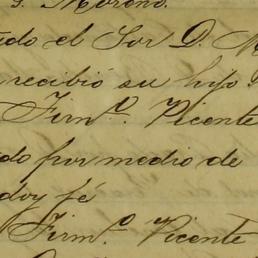 g. Moreno.
ido el Sor D. M
recibió su hijo
Firmo. Vicente
do por medio de
doy fé
Firmo. Vicente